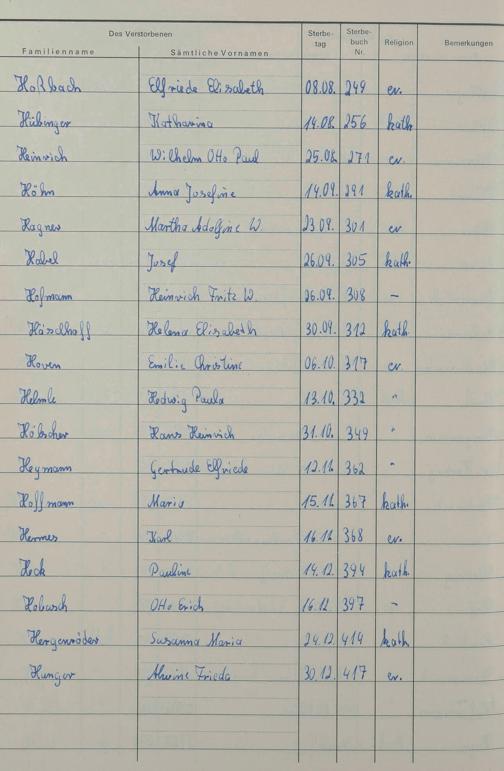 Des Verstorbenen
Familienname Sämtliche Vornamen Sterbe-tag Sterbe-buch Nr. Religion Bemerkungen
Hoßbach Elfriede Elisabeth 08.08. 249 ev.
Hübinger Katharina 14.08. 256 kath.
Heinrich Wilhelm Otto Paul 25.08. 271 ev.
Höhn Anna Josefine 14.09. 291 kath.
Hagner Martha Adolfine W. 23.09. 301 ev
Habel Josef 26.09. 305 kath.
Hofmann Heinrich Fritz W. 26.09. 308 –
Häselhoff Helena Elisabeth 30.09. 312 kath.
Hoven Emilie Christine 06.10. 317 ev.
Helmle Hedwig Paula 13.10. 332 "
Hölscher Hans Heinrich 31.10. 349 "
Heymann Gertrude Elfriede 12.11. 362 "
Hoffmann Maria 15.11. 367 kath.
Hermes Karl 16.11. 368 ev.
Heck Pauline 14.12. 394 kath.
Hobusch Otto Erich 16.12. 397 –
Hergenröder Susanna Maria 24.12. 414 kath
Hunger Alwine Frieda 30.12. 417 ev.